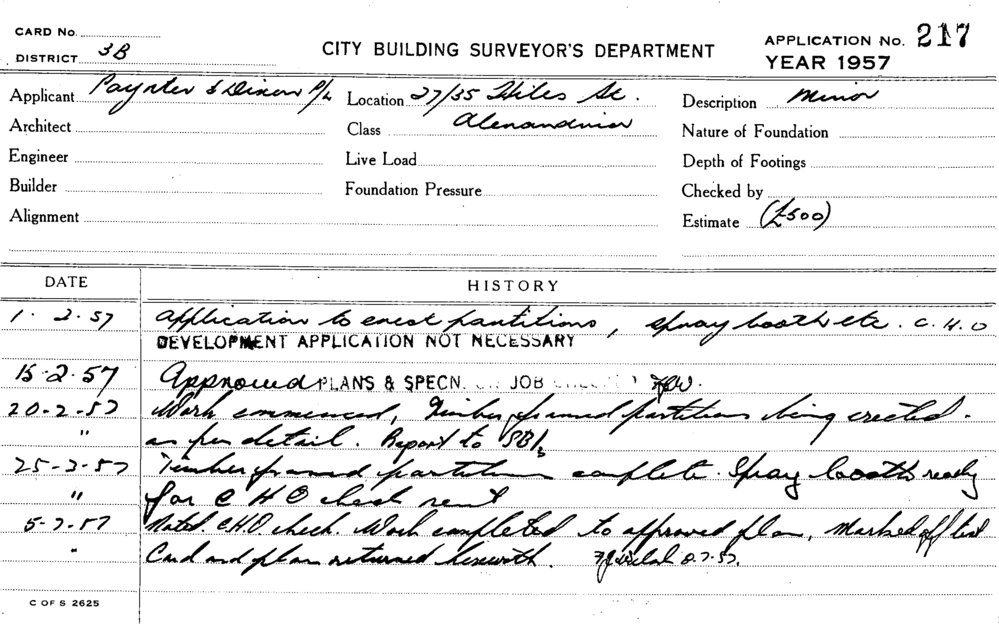 CARD No.
DISTRICT 3B
CITY BUILDING SURVEYOR'S DEPARTMENT
APPLICATION No. 217
YEAR 1957
Applicant Paynter & Dixon P/L
Location 27/35 Hiles St.
Description Minor
Architect
Class Alexandria
Nature of Foundation
Engineer
Live Load
Depth of Footings
Builder
Foundation Pressure
Checked by
Alignment
Estimate (£500)
DATE
HISTORY
1. 2. 57 Application to erect partitions, spray booth etc. C.H.O
DEVELOPMENT APPLICATION NOT NECESSARY
15-2-57 Approved PLANS & SPECN. JOB
20-2-57 Work commenced, Timber framed partitions being erected.
" as per detail. Report to SBI
25-2-57 Timber framed partitions complete. Spray booth ready
" for C H O check sent
5-7-57 Noted C.H.O. check. Work completed to approved plan, Marked off list
" Card and plan returned herewith. 8.7.57.
C OF S 2625